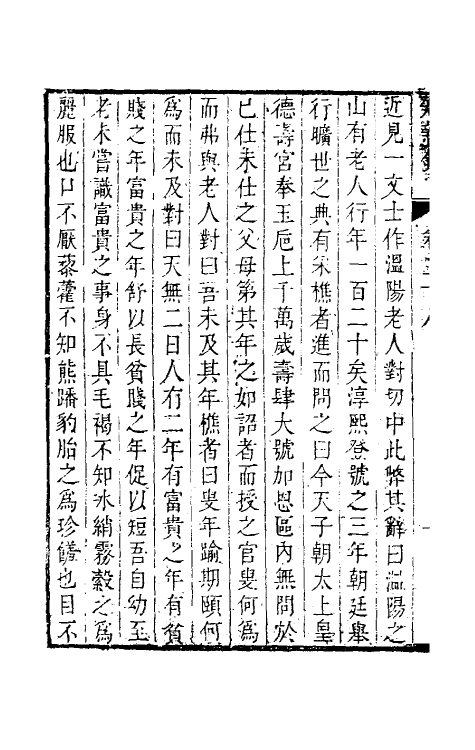 近見一文士作溫陽老人對切中此弊其辭曰溫陽之
山有老人行年一百二十矣淳熙登號之三年朝廷舉
行曠世之典有采樵者進而問之曰今天子朝太上皇
德壽宮奉玉卮上千萬歲壽肆大號加恩區内無間於
已仕未仕之父母第其年之如詔者而授之官叟何為
而弗與老人對曰吾未及其年樵者曰叟年踰期頤何
為而未及對曰天無二日人有二年有富貴之年有貧
賤之年富貴之年舒以長貧賤之年促以短吾自幼至
老未嘗識富貴之事身不具毛褐不知冰綃霧縠之為
麗服也口不厭藜藿不知熊蹯豹胎之為珍饈也目不